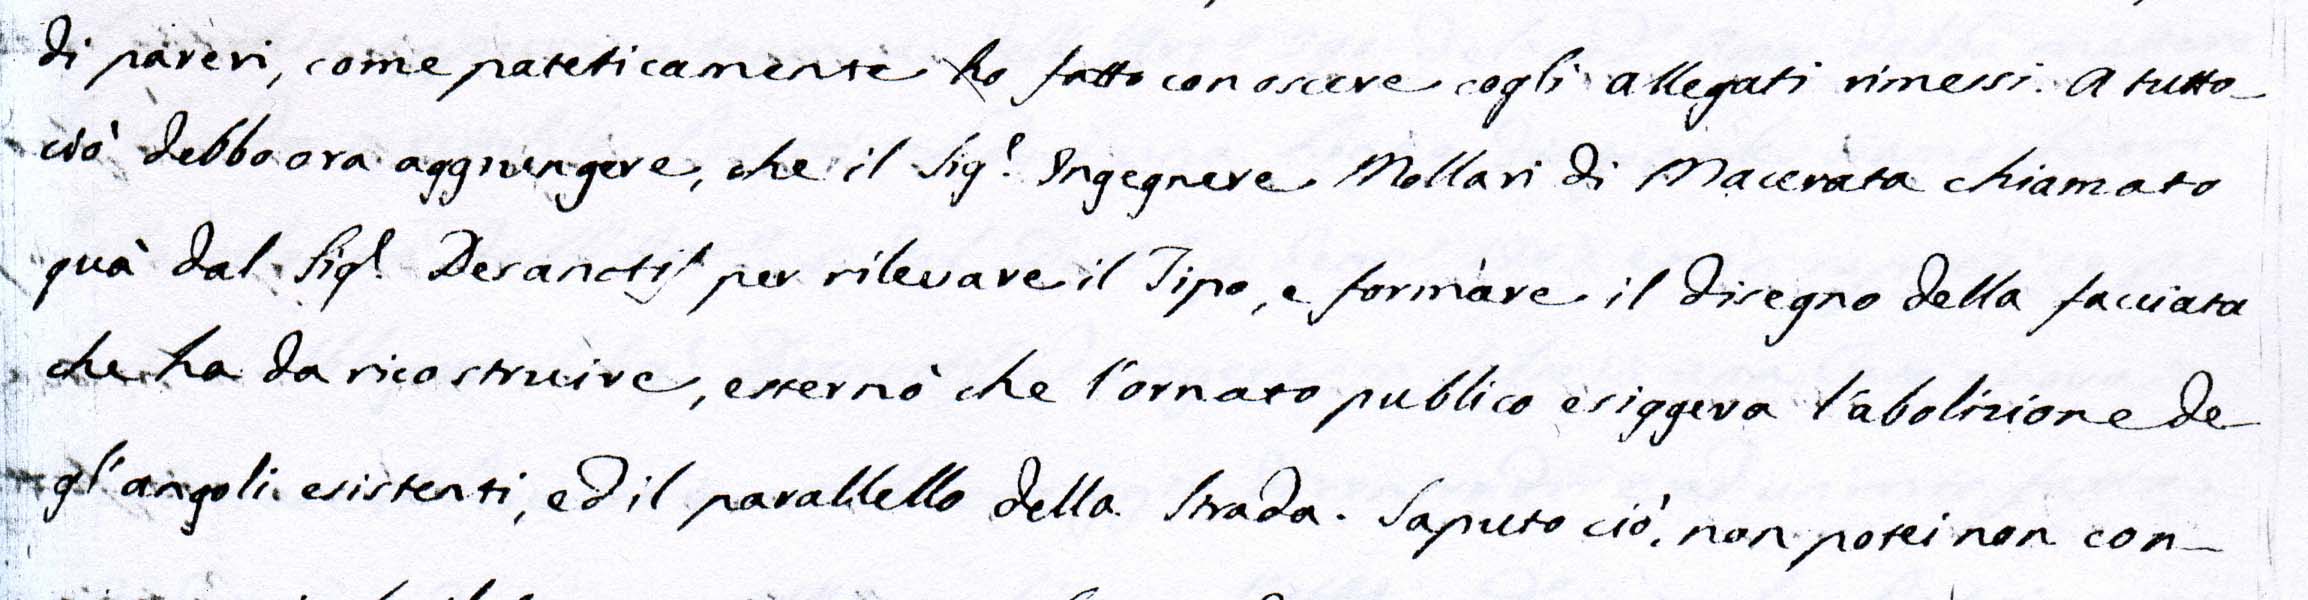 di pareri, come pateticamente ho fatto conoscere cogli allegati rimessi. A tutto
ciò debbo ora aggiungere, che il Sigr. Ingegnere Mollari di Macerata chiamato
quà dal Sigr. Desanctis per rilevare il Tipo, e formare il disegno della facciata
che ha da ricostruire, esternò che l'ornato publico esiggeva l'abolizione de
gl'angoli esistenti, ed il parallello della Strada. Saputo ciò, non potei non con-